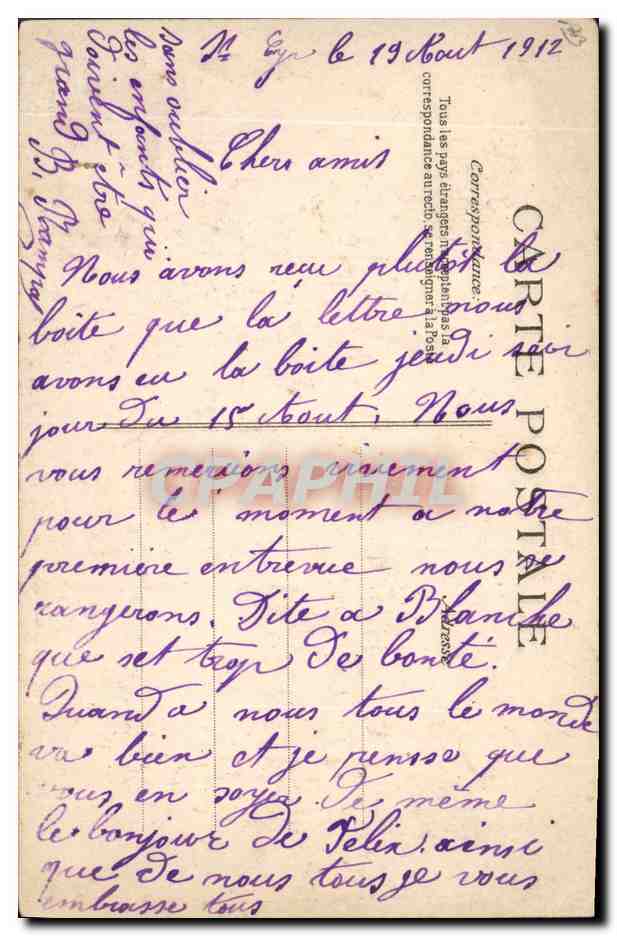 St Cyr le 19 Aout 1912
Chers amis
Nous avons recu plutôt la
boite que la lettre nous
avons eu la boite jeudi soir
jour du 15 Aout. Nous
vous remercions vivement
pour le moment a notre
première entrevue nous se
rangerons. Dite a Blanche
que set trop de bonté.
Quand a nous tous le monde
va bien et je pensse que
vous en soyer de même
le bonjour de Félix. ainsi
que de nous tous je vous
embrasse tous
sans oublier
les enfants qui
doivent être
grand B.
CARTE POSTALE
Correspondance.
Tous les pays étrangers n'acceptent pas la
correspondance au recto, se renseigner à la Poste
Adresse
CPAPHIL